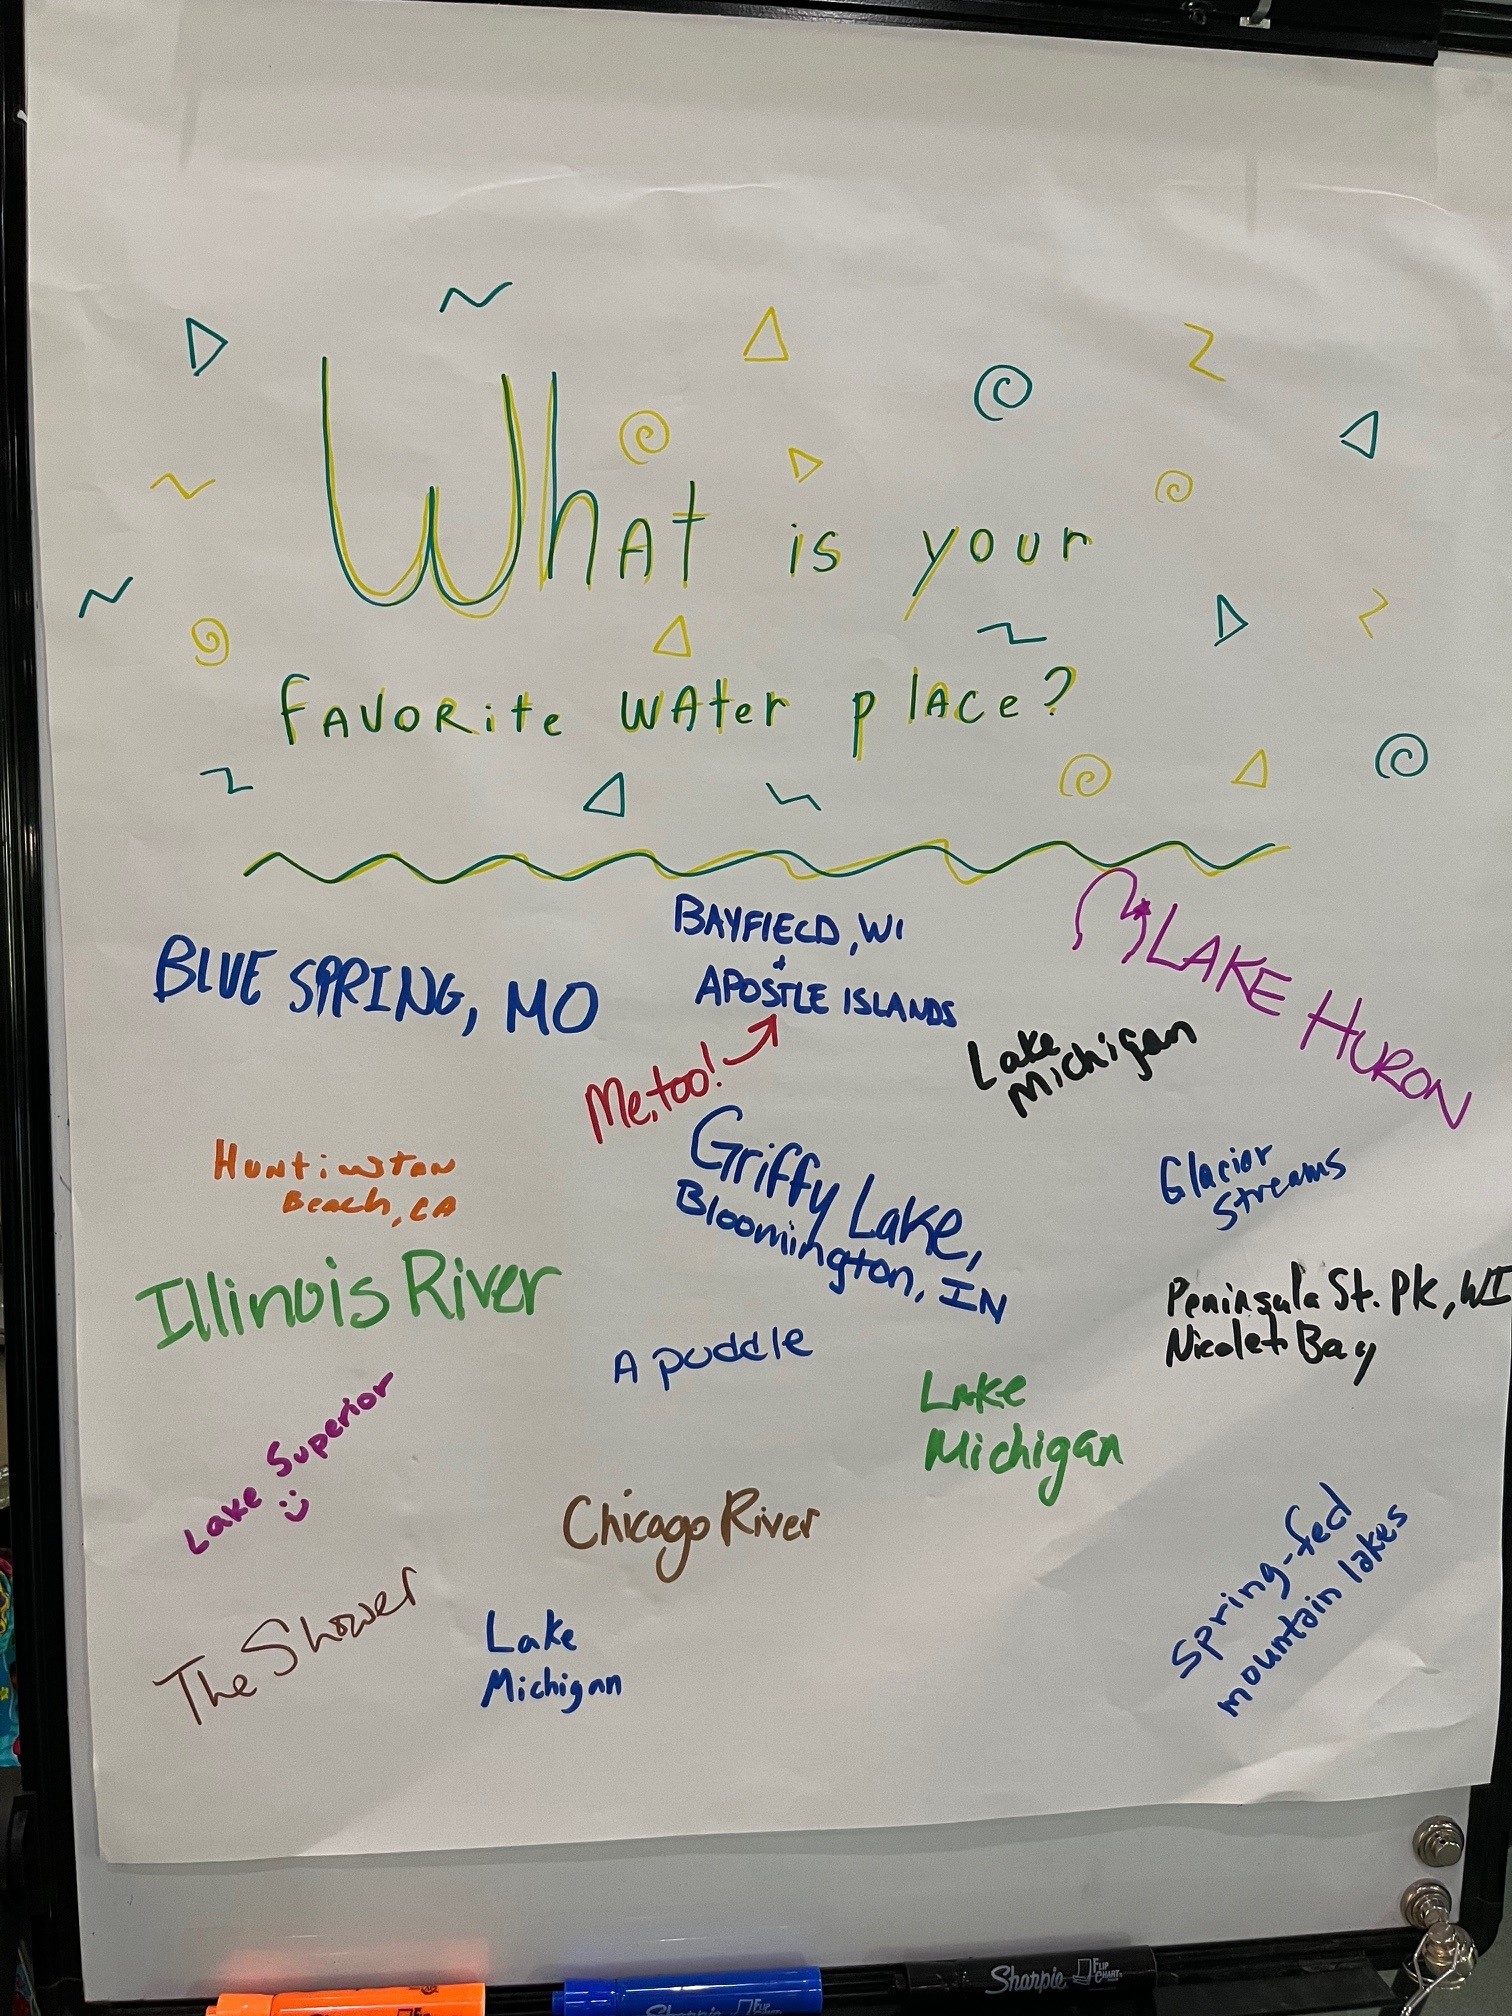 What is your
favorite water place?
BAYFIELD, WI
+
APOSTLE ISLANDS
LAKE HURON
BLUE SPRING, MO
Me, too!
Lake
Michigan
Huntinston
Beach, CA
Griffy Lake,
Bloomington, IN
Glacior
Streams
Illinois River
Peninsula St. Pk, WI
Nicolet Bay
A puddle
Lake
Michigan
Lake Superior
Chicago River
Spring-fed
mountain lakes
The Shower
Lake
Michigan
Sharpie FLIP CHART
Sharpie FLIP